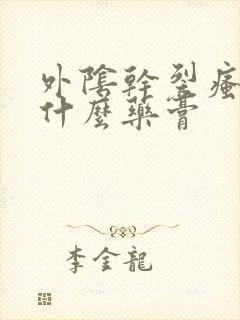 外陰幹裂瘙
什麼藥膏
李金龍